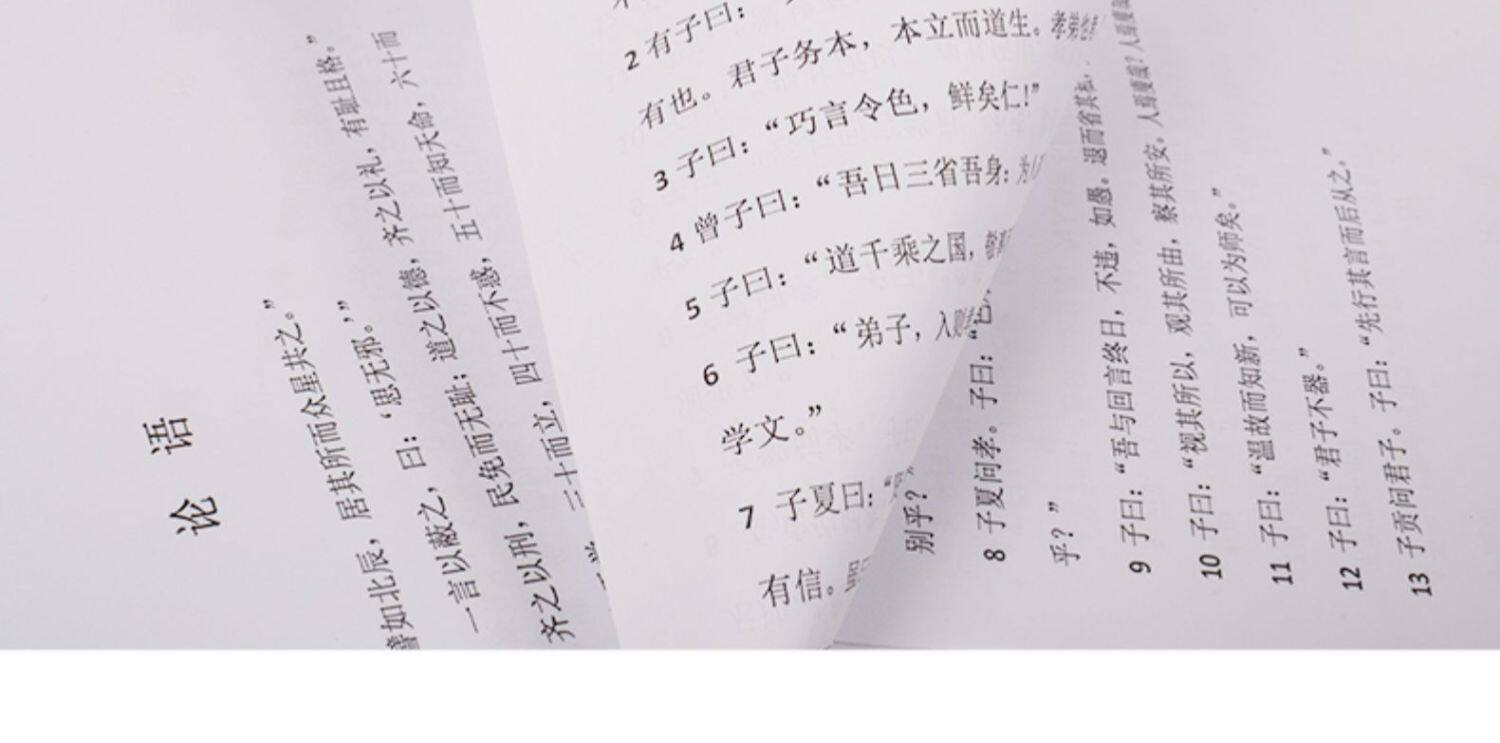 论语
譬如北辰，居其所而众星共之。”
一言以蔽之，曰：‘思无邪。’”
齐之以刑，民免而无耻；道之以德，齐之以礼，有耻且格。”
三十而立，四十而不惑，五十而知天命，六十而
2 有子曰：“
有也。君子务本，本立而道生。孝弟也者
3 子曰：“巧言令色，鲜矣仁!”
4 曾子曰：“吾日三省吾身：为人
5 子曰：“道千乘之国，
6 子曰：“弟子，入则
学文。”
7 子夏曰：“
有信。虽
别乎？
8 子夏问孝。子曰：“色
乎？”
9 子曰：“吾与回言终日，不违，如愚。退而省其私，
10 子曰：“视其所以，观其所由，察其所安。人焉廋哉？人焉廋哉
11 子曰：“温故而知新，可以为师矣。”
12 子曰：“君子不器。”
13 子贡问君子。子曰：“先行其言而后从之。”